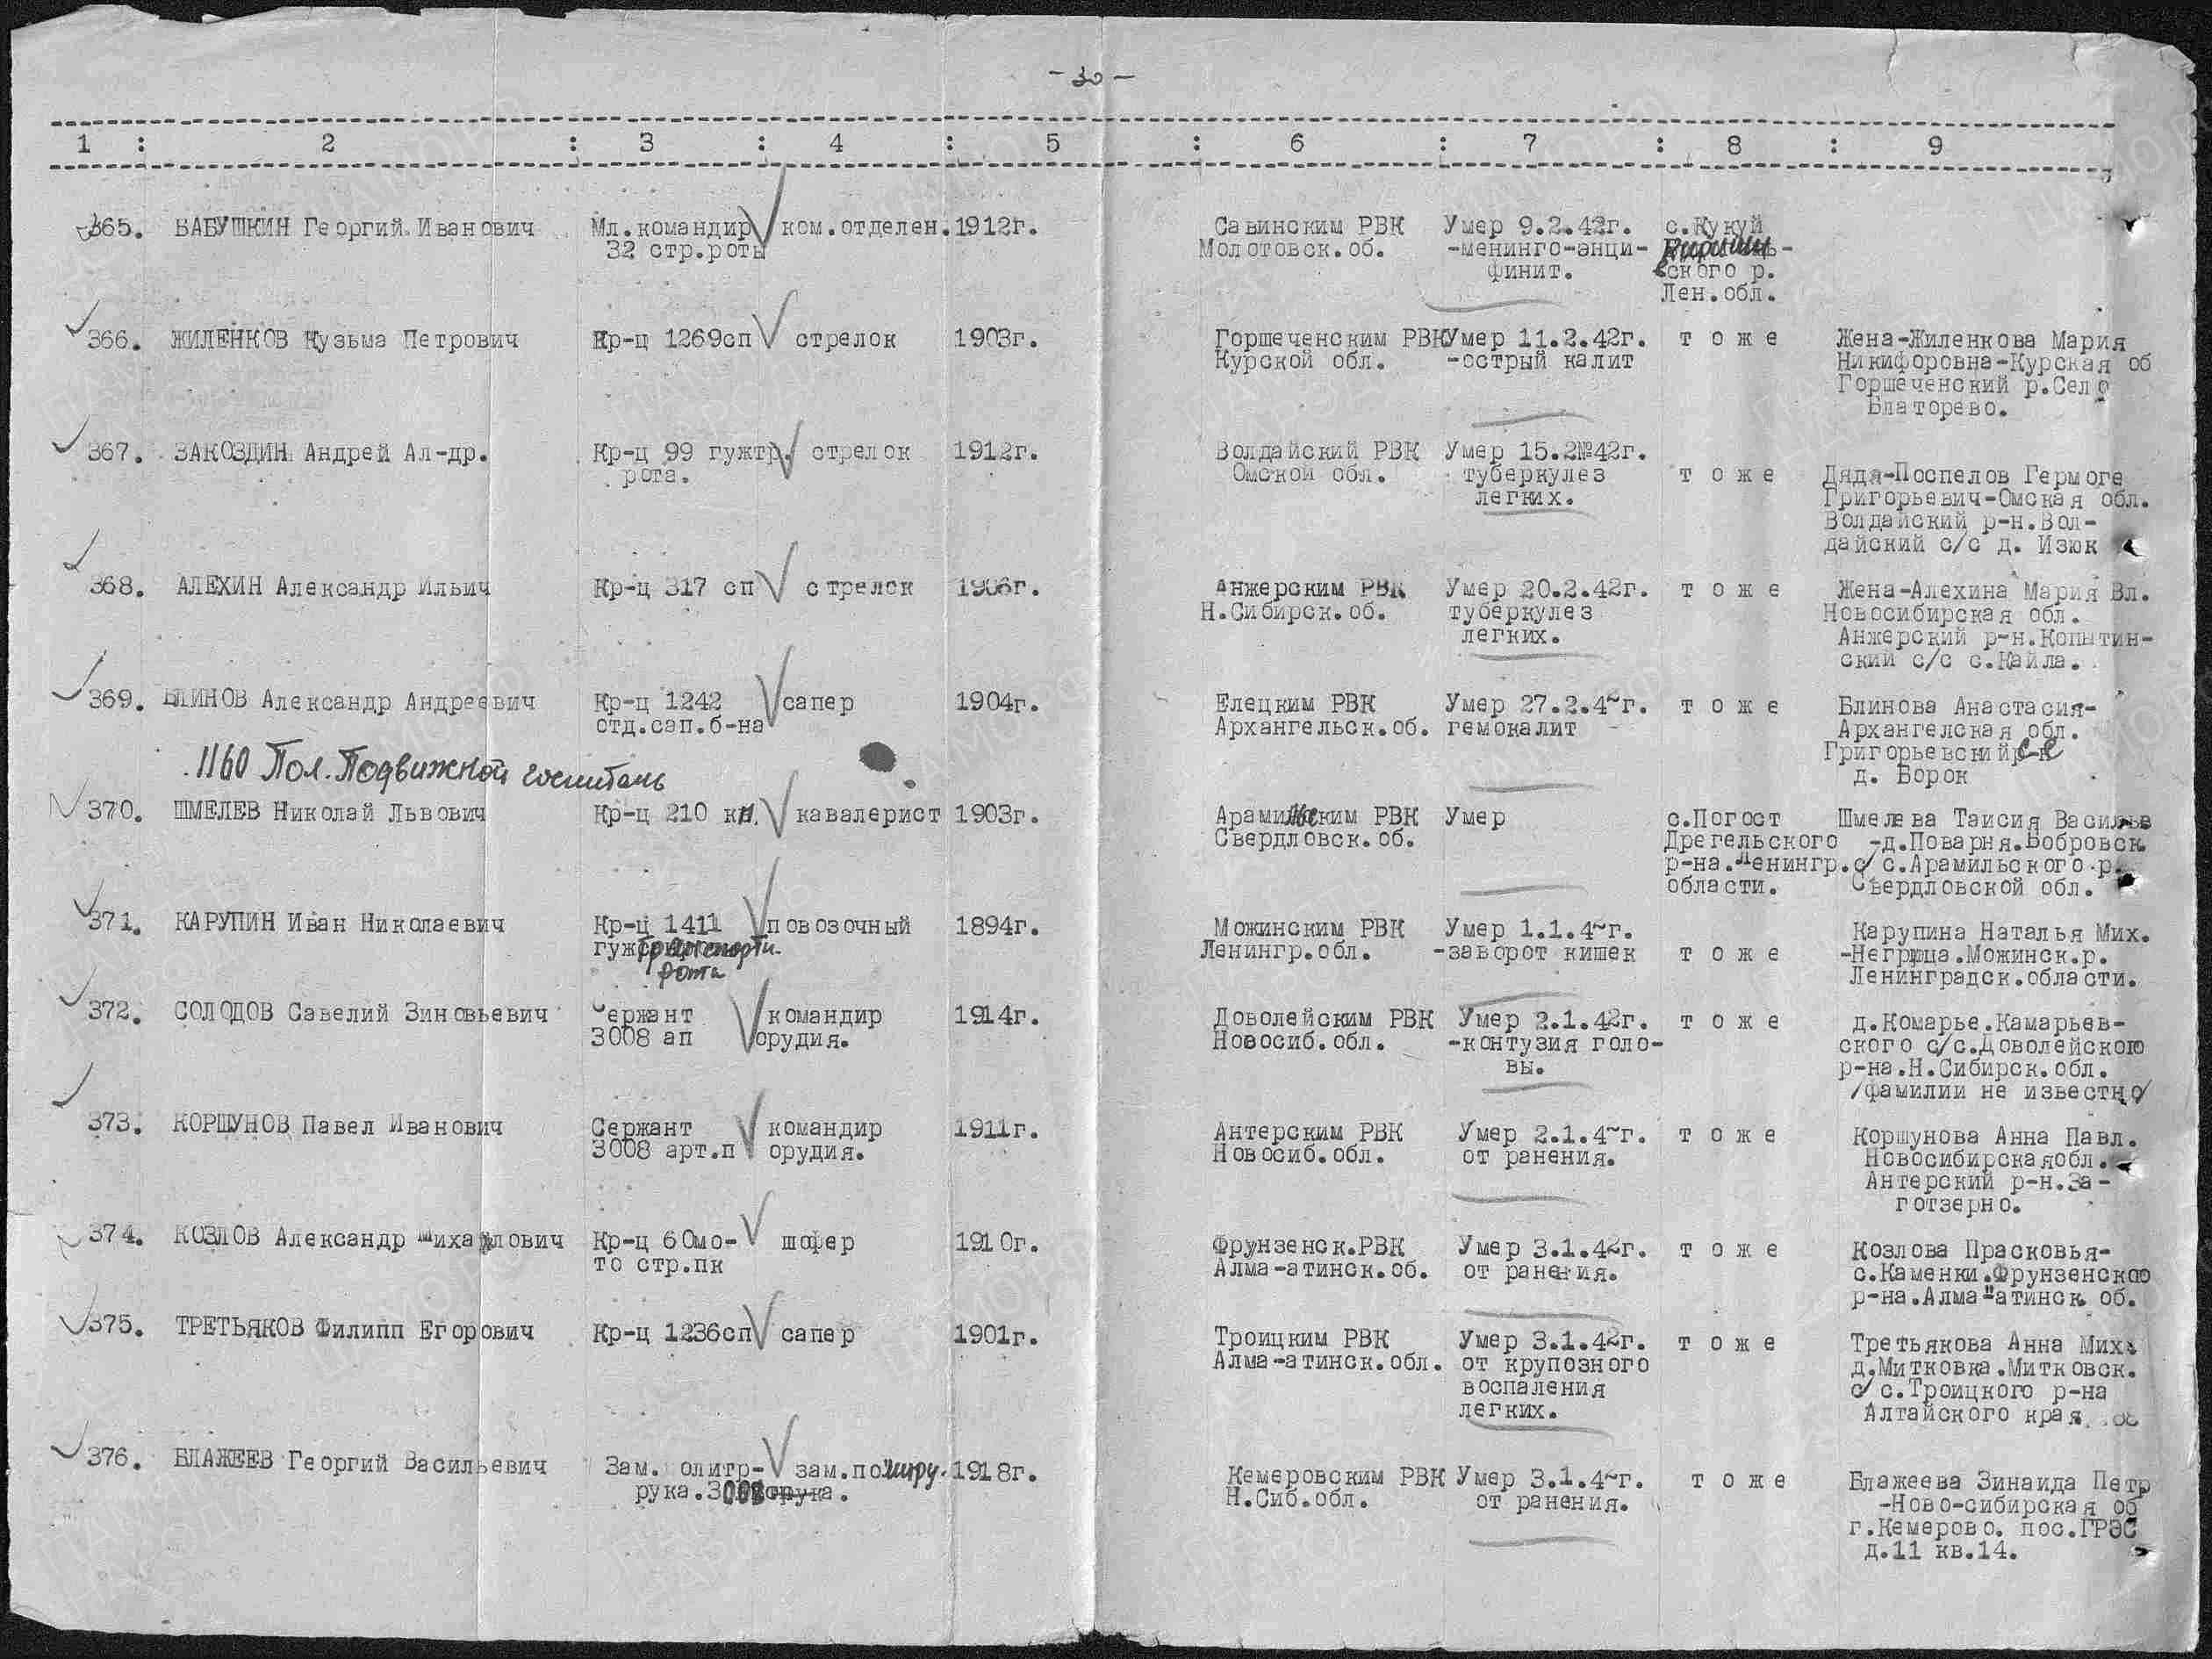 - 30 -
1 : 2 : 3 : 4 : 5 : 6 : 7 : 8 : 9
365. БАБУШКИН Георгий Иванович Мл.командир ком.отделен. 1912г. Савинским РВК Умер 9.2.42г. с.Кукуй
32 стр.роты Молотовск.об. -менинго-энци-
финит. ского р.
Лен.обл.
366. ЖИЛЕНКОВ Кузьма Петрович Кр-ц 1269сп стрелок 1903г. Горшеченским РВК Умер 11.2.42г. т о ж е Жена-Жиленкова Мария
Курской обл. -острый калит Никифоровна-Курская об
Горшеченский р.Село
Блаторево.
367. ЗАКОЗДИН Андрей Ал-др. Кр-ц 99 гужтр. стрелок 1912г. Волдайский РВК Умер 15.2№42г.
рота. Омской обл. туберкулез т о ж е Дядя-Поспелов Гермоге
легких. Григорьевич-Омская обл.
Волдайский р-н.Вол-
дайский с/с д. Изюк
368. АЛЕХИН Александр Ильич Кр-ц 317 сп стрелок 1906г. Анжерским РВК Умер 20.2.42г. т о ж е Жена-Алехина Мария Вл.
Н.Сибирск.об. туберкулез Новосибирская обл.
легких. Анжерский р-н.Копытин-
ский с/с с.Кайла.
369. БЛИНОВ Александр Андреевич Кр-ц 1242 сапер 1904г. Елецким РВК Умер 27.2.4~г. т о ж е Блинова Анастасия-
отд.сап.б-на Архангельск.об. гемокалит - Архангелская обл.
Григорьевский
д. Борок
1160 Пол. Подвижной госпиталь
370. ШМЕЛЕВ Николай Львович Кр-ц 210 кп. кавалерист 1903г. Арамильским РВК Умер с.Погост Шмелева Таисия Василье
Свердловск.об. Дрегельского -д.Поварня.Бобровск
р-на.Ленингр. с/с.Арамильского р.
области. Свердловской обл.
371. КАРУПИН Иван Николаевич Кр-ц 1411 повозочный 1894г. Можинским РВК Умер 1.1.4~г. Карупина Наталья Мих.
гуж транспортн. Ленингр.обл. -заворот кишек т о ж е -Негрица.Можинск.р.
рота Ленинградск.области.
372. СОЛОДОВ Савелий Зиновьевич Сержант командир 1914г. Доволейским РВК Умер 2.1.42г. т о ж е д.Комарье.Камарьев-
3008 ап орудия. Новосиб.обл. -контузия голо- ского с/с.Доволейского
вы. р-на.Н.Сибирск.обл.
/фамилии не известно/
373. КОРШУНОВ Павел Иванович Сержант командир 1911г. Антерским РВК Умер 2.1.4~г. т о ж е Коршунова Анна Павл.
3008 арт.п орудия. Новосиб.обл. от ранения. Новосибирскаяобл.
Антерский р-н.За-
готзерно.
374. КОЗЛОВ Александр Михайлович Кр-ц 60мо- шофер 1910г. Фрунзенск.РВК Умер 3.1.42г. т о ж е Козлова Прасковья-
то стр.пк Алма-атинск.об. от ранения. с.Каменки.Фрунзенско
р-на.Алма-атинск об.
375. ТРЕТЬЯКОВ Филипп Егорович Кр-ц 1236сп сапер 1901г. Троицким РВК Умер 3.1.42г. т о ж е Третьякова Анна Мих.
Алма-атинск.обл. от крупозного д.Митковка.Митковск.
воспаления с/с.Троицкого р-на
легких. Алтайского края
376. БЛАЖЕЕВ Георгий Васильевич Зам. олитр- зам.политру. 1918г. Кемеровским РВК Умер 3.1.4~г. т о ж е Блажеева Зинаида Петр
рука.3008 Н.Сиб.обл. от ранения. -Ново-сибирская об
г.Кемерово. пос.ГРЭС
д.11 кв.14.